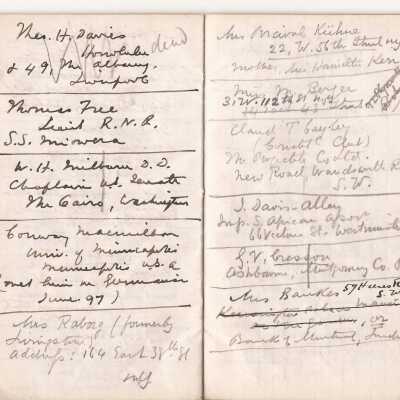 Theo. H. Davies
Honolulu
& 49, The Albany,
Liverpool
dead
Thomas Free
Lieut R.N.R.
S.S. Miowera
W. H. Milburn D.D.
Chaplain U.S. Senate
The Cairo, Washington
Conway Macmillan
Univ. of Minneapolis
Minneapolis U.S.A
(met him on
June 97)
Mrs Raborg (formerly
Livingston)
Address: 164 East 38th St
NY
Mrs Percival Kühne
22, W. 56th St
mother Mrs Hamilton Kerr
M. Berger
31, W. 112th St N.Y.
Claud T Cayley
(Constl. Club)
New Road Wandsworth Rd
S.W.
J. Davis-Allen
Imp. S. African Assn
66 Victoria St. Westminster
G. V. Cresson
Ashbourne, Montgomery Co. P
Mrs Bankes
S.W.
or
Bank of Montreal,